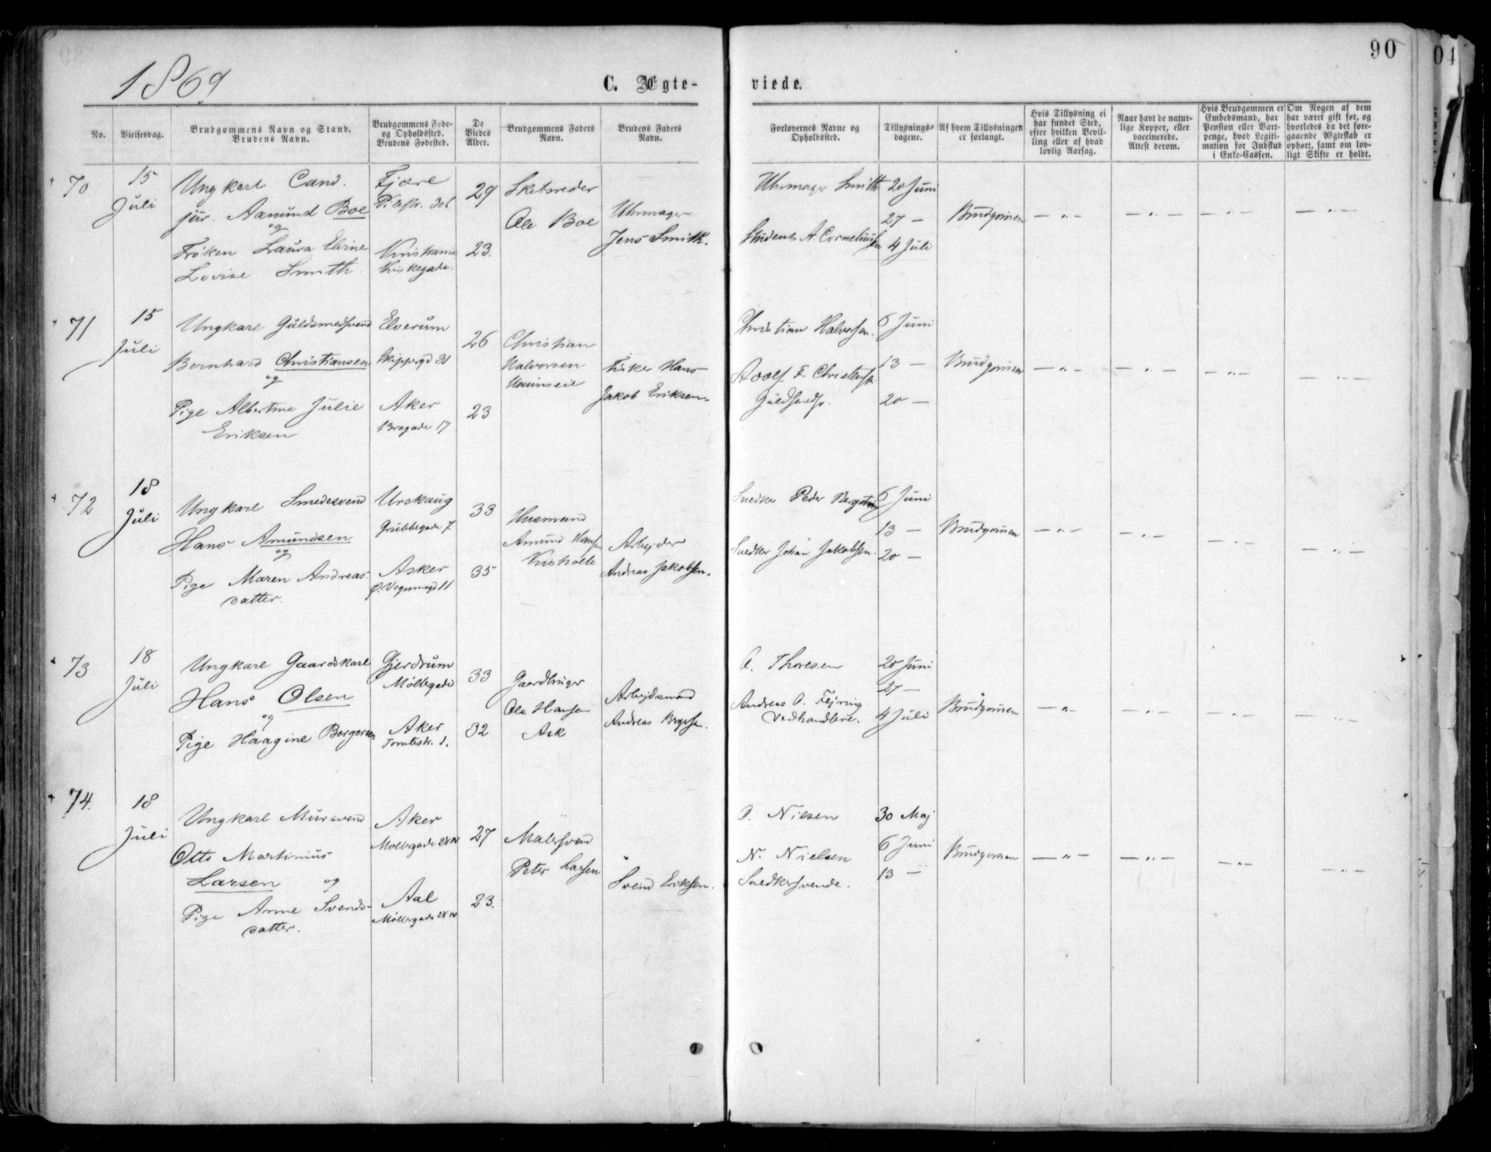 1869
C. Ægte-
viede.
90
04
No.
Vielsesdag.
Brudgommens Navn og Stand.
Brudens Navn.
Brudgommens Føde-
og Opholdssted.
Brudens Fødested.
De
Viedes
Alder.
Brudgommens Faders
Navn.
Brudens Faders
Navn.
Forlovernes Navne og
Opholdssted.
Tillysnings-
dagene.
Af hvem Tillysningen
er forlangt.
Hvis Tillysning ei
har fundet Sted,
efter hvilken Bevil-
ling eller af hvad
lovlig Aarsag.
Naar havt de natur-
lige Kopper, eller
vaccinerede.
Attest derom.
Hvis Brudgommen er
Embedsmand, har
Pension eller Vart-
penge, hvad Legiti-
mation for Indskud
i Enke-Cassen.
Om Nogen af dem
har været gift før, og
hvorledes da det fore-
gaaende Ægteskab er
ophørt, samt om lov-
ligt Skifte er holdt.
70
15
Juli
Ungkarl Cand.
jur. Aamund Boe
og
Frøken Laura Elvine
Lovise Smith
Fjære
Kristiania
Kirkegade
29
23.
Skibsreder
Ole Boe
Uhrmager
Jens Smith.
Uhrmager Smith
Student A. Cornelius
20 Juni
27 —
4 Juli
Brudgommen
— „ —
— „ —
— „ —
— „ —
71
15
Juli
Ungkarl Guldsmedsvend
Bernhard Christiansen
og
Pige Albertine Julie
Eriksen
Elverum
Skippergd 31
Aker
Brogade 17
26
23
Christian
Halvorsen
Fisker Hans
Jakob Eriksen
Christian Halvorsen
Adolf F. Christensen
6 Juni
13 —
20 —
Brudgommen
— „ —
— „ —
— „ —
— „ —
72
18
Juli
Ungkarl Smedesvend
Hans Amundsen
og
Pige Maren Andreas-
datter.
Urskaug
Grubbegade 7
Asker
Ø. Vognmgd 11
33
35
Husmand
Amund Hansen
Arbejder
Andreas Jakobsen.
Snedker Peder
Snedker Johan Jakobsen.
6 Juni
13 —
20 —
Brudgommen
— „ —
— „ —
— „ —
— „ —
73
18
Juli
Ungkarl Gaardskarl
Hans Olsen
og
Pige Haagine Bergersen
Gjerdrum
Møllegade
Aker
Tomtestr. 1.
33
32
Gaardbruger
Ole Hansen
Ask
Arbejdsmand
Andreas Bergersen.
A. Thoresen
Andreas O. Fejring
Vedhandlere.
20 Juni
27 —
4 Juli
Brudgommen
— „ —
— „ —
— „ —
— „ —
74.
18
Juli
Ungkarl Mursvend
Otto Martinius
Larsen og
Pige Anne Svends-
datter.
Aker
Møllegade
Aal
Møllegade
27
23.
Malersvend
Peter Larsen
Svend Eriksen.
P. Nielsen
N. Nielsen
Snedkersvende.
30 Maj
6 Juni
13 —
Brudgommen
— „ —
— „ —
— „ —
— „ —